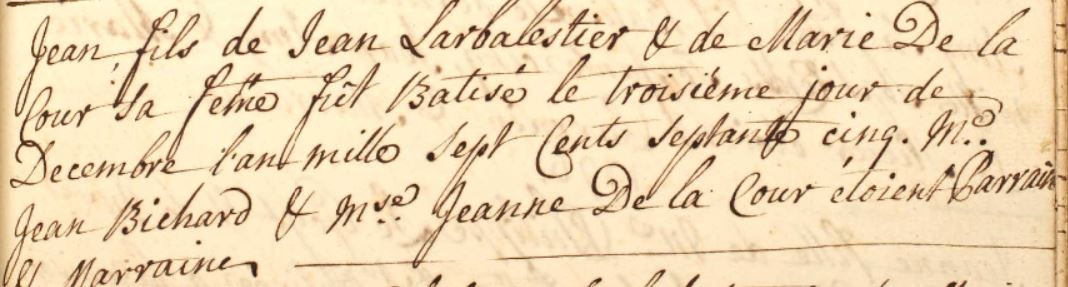 Jean, fils de Jean Larbalestier & de Marie De la
Cour sa feme fût Batisé le troisiéme jour de
Decembre l'an mille sept Cents septante cinq. Mr.
Jean Bichard & Mse. Jeanne De la Cour étoient Parrain
& Marraine